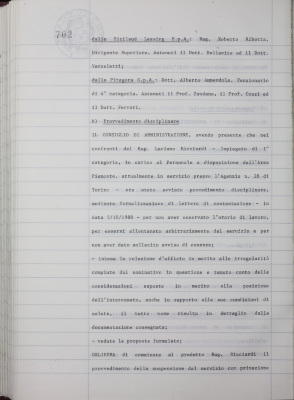 702
dalla Sicilsud Leasing S.p.A.: Rag. Roberto Albotta,
Dirigente Superiore. Astenuti il Dott. Bellavia ed il Dott.
dalla Pitagora S.p.A.: Dott. Alberto Funzionario
di 4° categoria. Astenuti il Prof. il Prof. Cozzi ed
il Dott. Ferrari.
6) Provvedimento disciplinare
IL CONSIGLIO DI AMMINISTRAZIONE, avendo presente che nei
confronti del Rag. Luciano Ricciardi - Impiegato di 1°
categoria, in carico al Personale a disposizione dell'Area
Piemonte, attualmente in servizio presso l'Agenzia n. 28 di
Torino - era stato avviato provvedimento disciplinare,
mediante formalizzazione di lettera di contestazione - in
data 5/10/1988 - per non aver osservato l'orario di lavoro,
per essersi allontanato arbitrariamente dal servizio e per
non aver dato sollecito avviso di assenza;
- intesa la relazione d'ufficio in merito alle irregolarità
compiute dal nominativo in questione e tenuto conto delle
considerazioni esposte in merito alla posizione
dell'interessato, anche in rapporto alle sue condizioni di
salute, il tutto come risulta in dettaglio dalla
documentazione consegnata;
- vedute le proposte formulate;
DELIBERA di comminare al predetto Rag. Ricciardi il
provvedimento della sospensione dal servizio con privazione